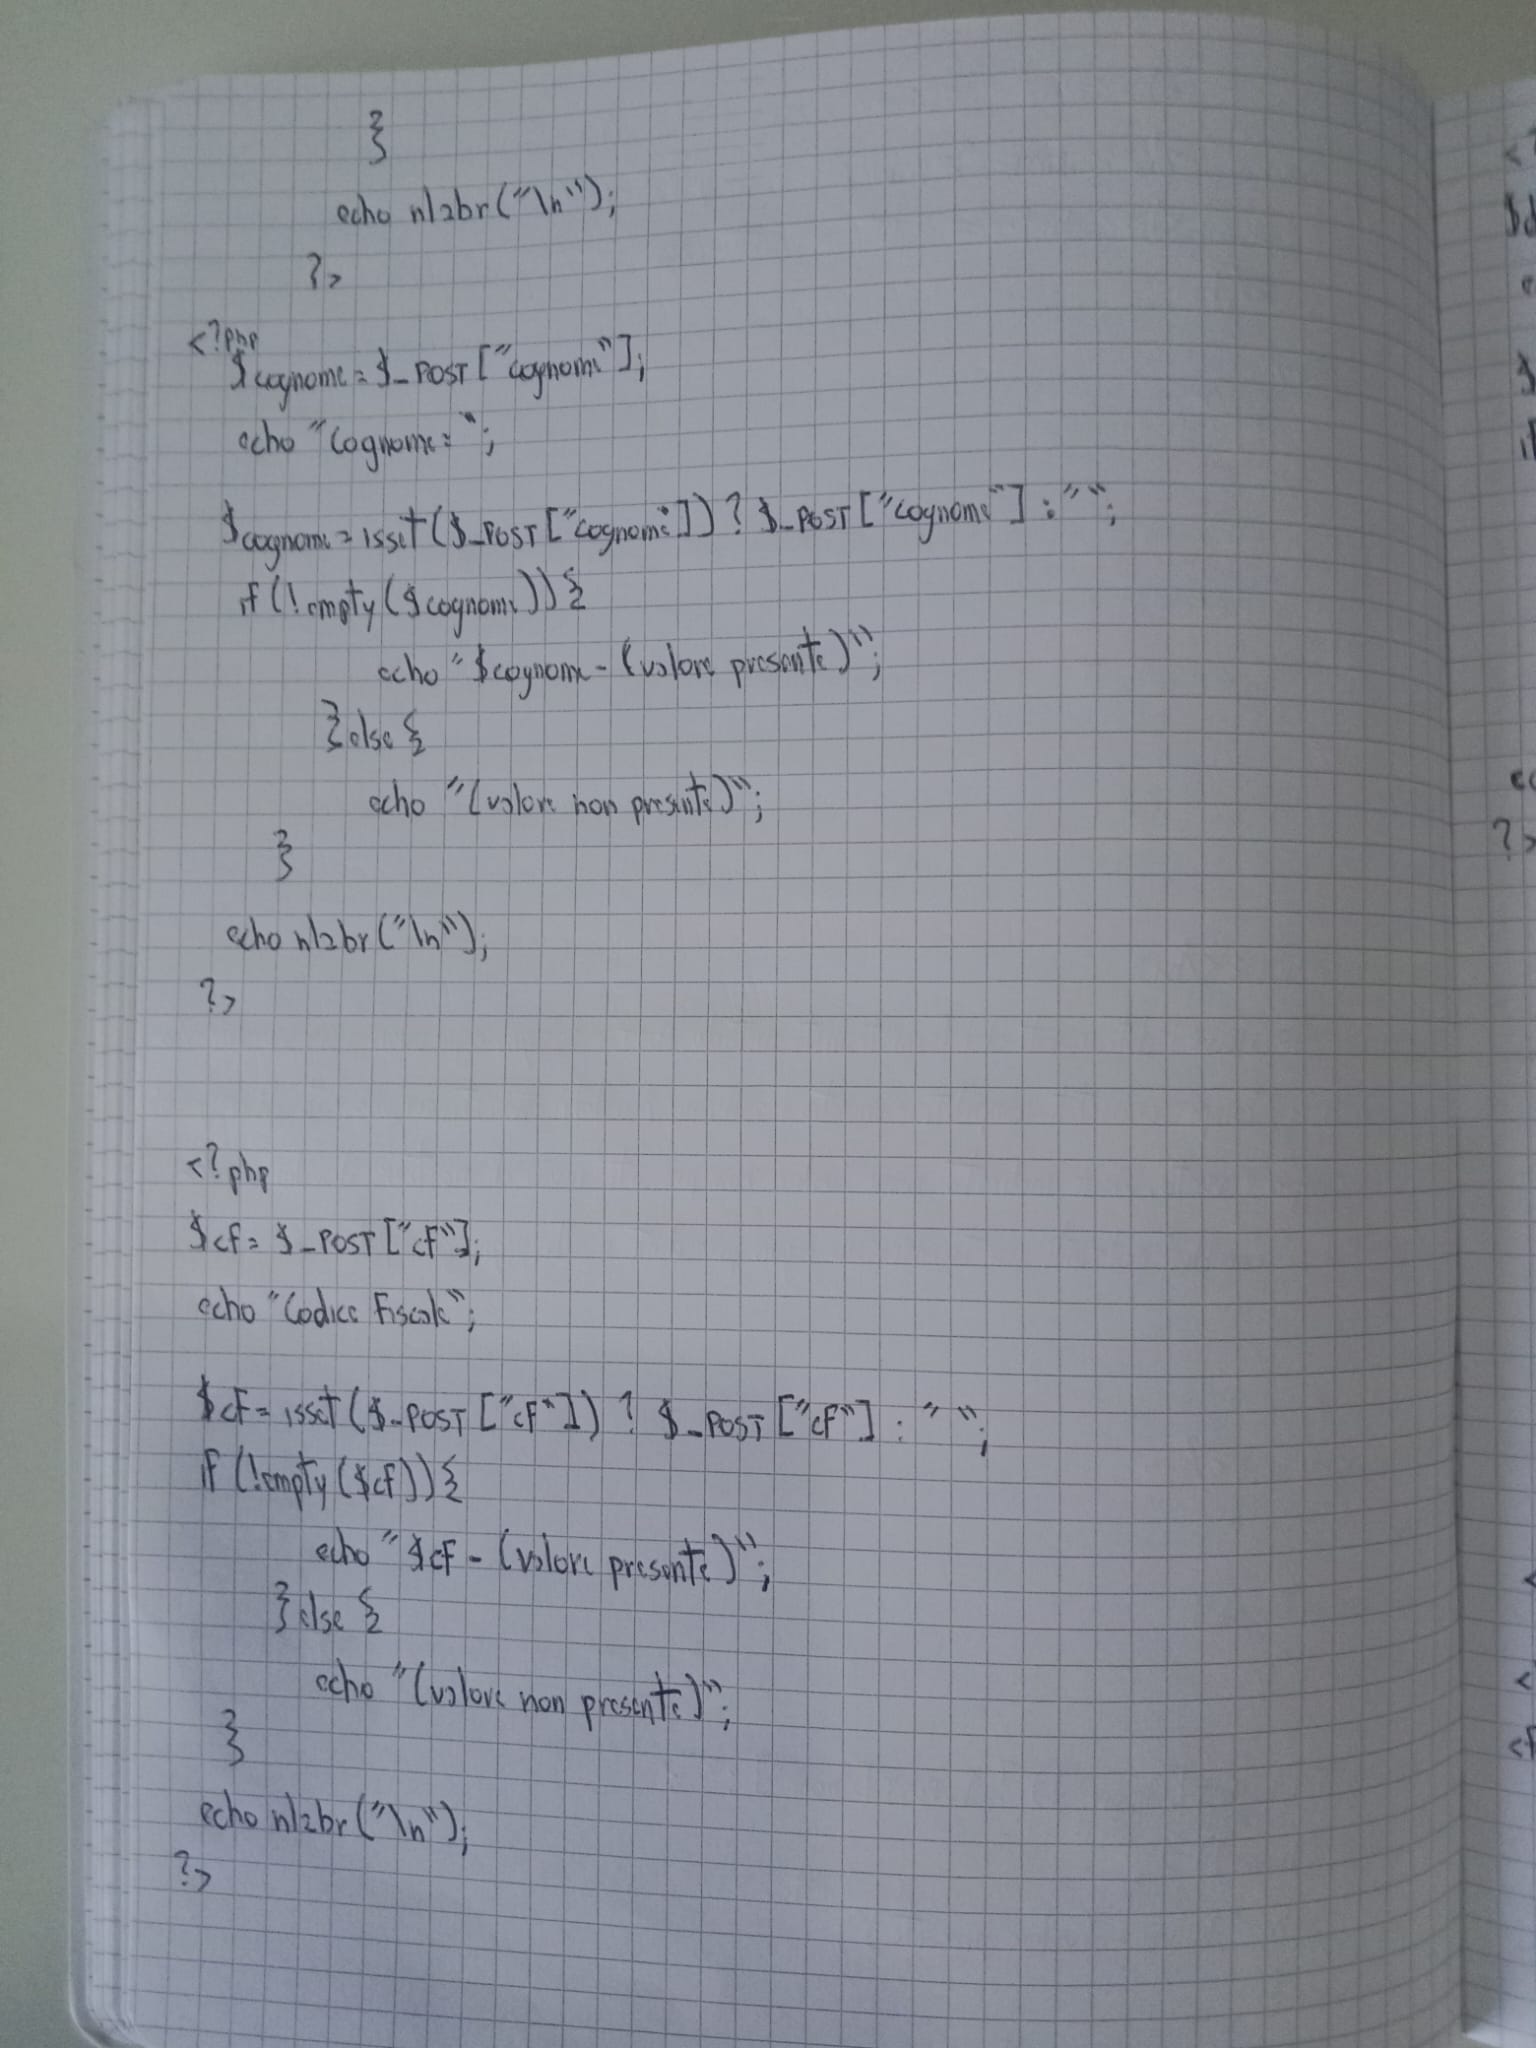 }
echo nl2br("\n");
?>
<?php
$cognome = $_POST["cognome"];
echo "Cognome= ";
$cognome = isset($_POST["cognome"]) ? $_POST["cognome"] : " ";
if (!empty($cognome)) {
echo "$cognome - (valore presente)";
} else {
echo "(valore non presente)";
}
echo nl2br("\n");
?>
<?php
$cf = $_POST["cf"];
echo "Codice Fiscale";
$cf = isset($_POST["cf"]) ? $_POST["cf"] : " ";
if (!empty($cf)) {
echo "$cf - (valore presente)";
} else {
echo "(valore non presente)";
}
echo nl2br("\n");
?>